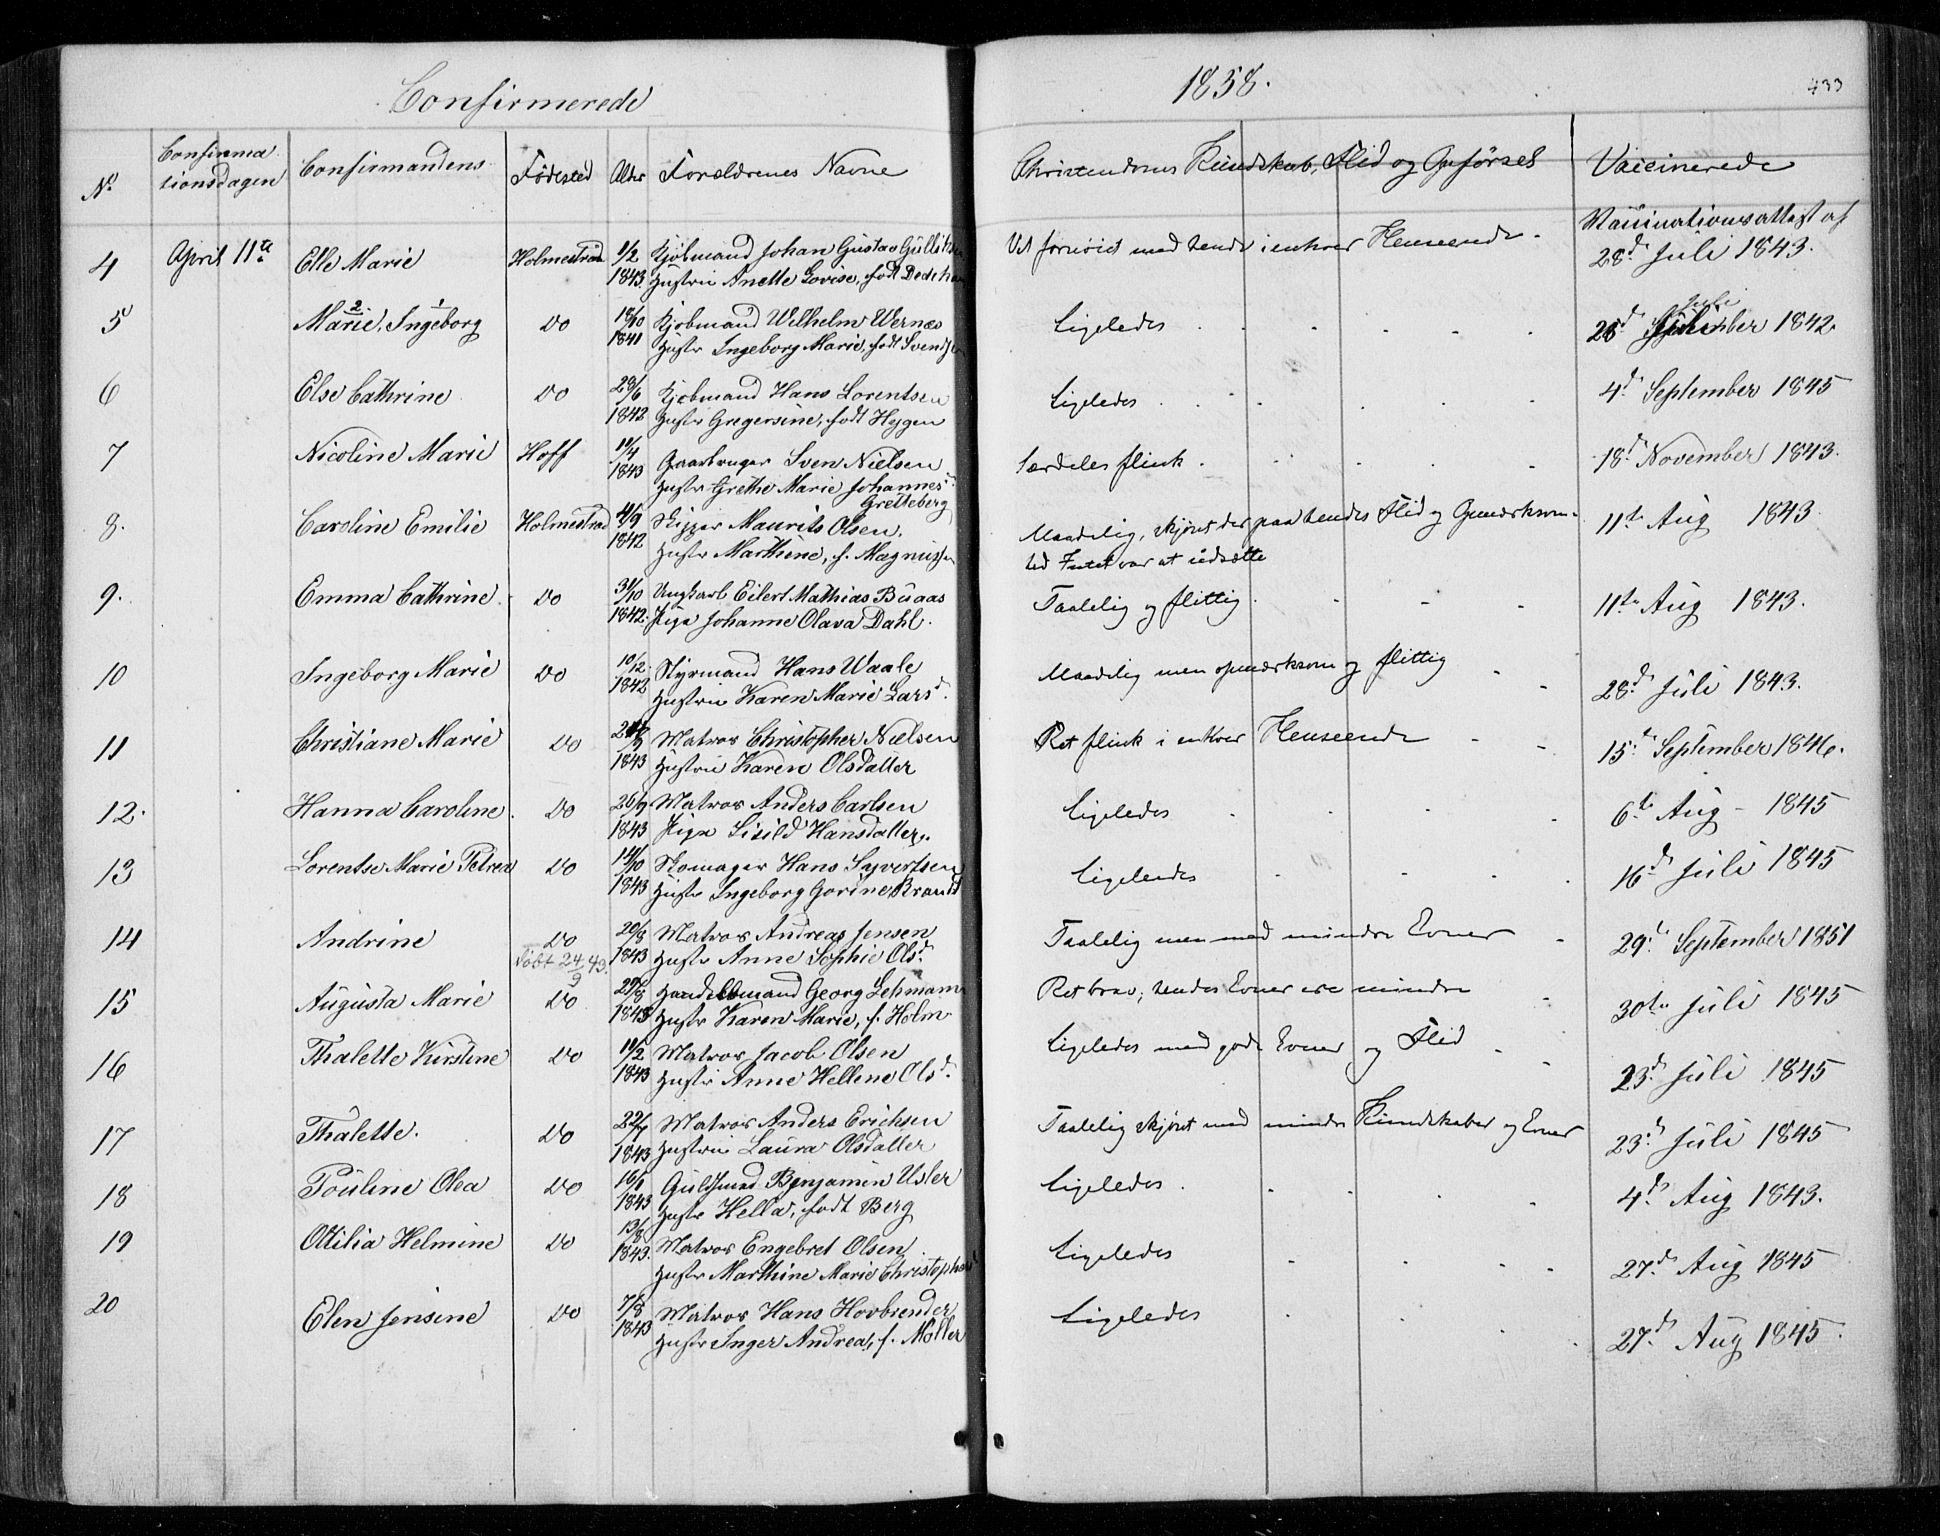 Confirmerede
1858.
433
No Confirmationsdagen Confirmandens Fødested Alder Forældrenes Navne Christendoms Kundskab, Flid og Opførsel Vaccinerede
Vaccinationsattest af
4 April 11te Elle Marie Holmestrand 1/2 Kjøbmand Johan Gustav Gulliksen Vel fornøiet med hende i enhver Henseende - 28de Juli 1843.
1843. Hustru Anette Lovise, født
5 Marie, Ingeborg do 18/10 Kjøbmand Wilhelm Wernes Ligeledes 1842.
2 1
1841 Hustr Ingeborg Marie, født Svendsen
6 Else Cathrine do 28/6 Kjøbmand Hans Lorentsen Ligeledes 4de September 1845
1842 Hustr Gregersine, født Hygen
7 Nicoline Marie Hoff 11/4 Gaarbruger Sven Nielsen særdeles flink. 18de November 1843.
1843 Hustr Grethe Marie Johannesd
Gretteberg
8. Caroline Emilie Holmestrad 4/9 Skipper Maurits Olsen. Maadelig, skjønt der paa hendes Flid og Opmærksom- 11te Aug 1843
1842 Hustr Marthine, f. Magnussen hed Intet var at udsætte
9. Emma Cathrine. do 31/10 Ungkarl Eilert Mathias Buaas Taalelig og flittig 11te Aug 1843.
1842. Pige Johanne Olava Dahl.
10 Ingeborg Marie do 10/12 Styrmand Hans Waale Maadelig men opmærksom og flittig 28de Juli 1843.
1842 Hustru Karen Marie Larsd.
11 Christiane Marie do Matros Christopher Nielsen Ret flink i enhver Henseende 15de September 1846.
1843 Hustru Karen Olsdatter
12. Hanna Caroline. do 26/9 Matros Anders Carlsen Ligeledes 6te Aug - 1845
1843 Pige Sisild Hansdatter.
13 Lorentse Marie Petren do 14/10 Skomager Hans Syvertsen Ligeledes 16de Juli 1845
1843 Hustr Ingeborg Gorine Brandt
14 Andrine do 20/8 Matros Andreas Jensen Taalelig men med mindre Evner 29de September 1851
født 24/9 43. 1843 Hustr Anne Sophie Olsd.
15 Augusta Marie do 29/8 Handelsmand Georg Lehmann Ret brav; hendes Evner ere mindre 30te Juli 1845
1843 Hustr Karen Marie, f. Holm
16 Thalette Kirstine do 11/2 Matros Jacob Olsen Ligeledes med gode Evner og Flid 23de Juli 1845
1843 Hustr Anne Hellene Olsd.
17 Thalette. do 22/7 Matros Anders Erichsen Taalelig skjønt med mindre Kundskaber og Evner 23de Juli 1845
1843 Hustru Laura Olsdatter
18 Pouline Olea do 16/1 Guldsmed Benjamin Usler Ligeledes. 4de Aug 1843.
1843 Hustr Hella, født Berg
19 Ottilia Helmine do 13/8 Matros Engebret Olsen Ligeledes 27de Aug 1845
1843. Hustr Marthine Marie Christophersd
20 Elen Jensine do 7/8 Matros Hans Hovbrender Ligeledes 27de Aug 1845.
1843 Hustr Inger Andrea, f. Møller